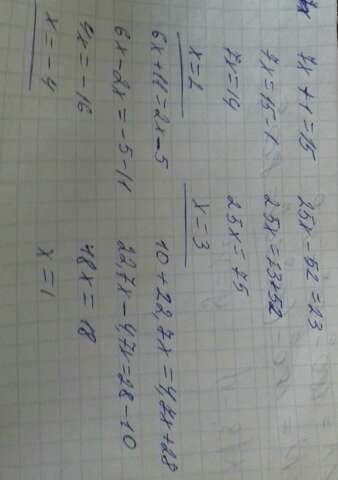 7x + 1 = 15
7x = 15 - 1
7x = 14
x = 2
6x + 11 = 2x - 5
6x - 2x = -5 - 11
4x = -16
x = -4
25x - 52 = 23
25x = 23 + 52
25x = 75
x = 3
10 + 22,7x = 4,7x + 28
22,7x - 4,7x = 28 - 10
18x = 18
x = 1